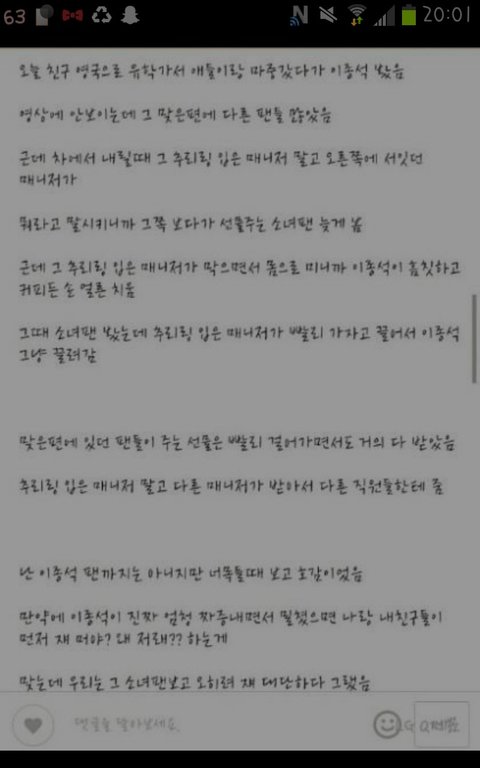 63
20:01
오늘 친구 영국으로 유학가서 애들이랑 마중갔다가 이종석 봤음
영상에 안보이는데 그 맞은편에 다른 팬들 많았음
근데 차에서 내릴때 그 추리링 입은 매니저 말고 오른쪽에 서있던
매니저가
뭐라고 말시키니까 그쪽 보다가 선물주는 소녀팬 늦게 봄
근데 그 추리링 입은 매니저가 막으면서 몸으로 미니까 이종석이 흠칫하고
커피든 손 얼른 치움
그때 소녀팬 봤는데 추리링 입은 매니저가 빨리 가자고 끌어서 이종석
그냥 끌려감
맞은편에 있던 팬들이 주는 선물은 빨리 걸어가면서도 거의 다 받았음
추리링 입은 매니저 말고 다른 매니저가 받아서 다른 직원들한테 줌
난 이종석 팬까지는 아니지만 너목들때 보고 호감이었음
만약에 이종석이 진짜 엄청 짜증내면서 밀쳤으면 나랑 내친구들이
먼저 쟤 머야? 왜 저래?? 하는게
맞는데 우리는 그 소녀팬보고 오히려 쟤 대단하다 그랬음
댓글을 달아보세요.